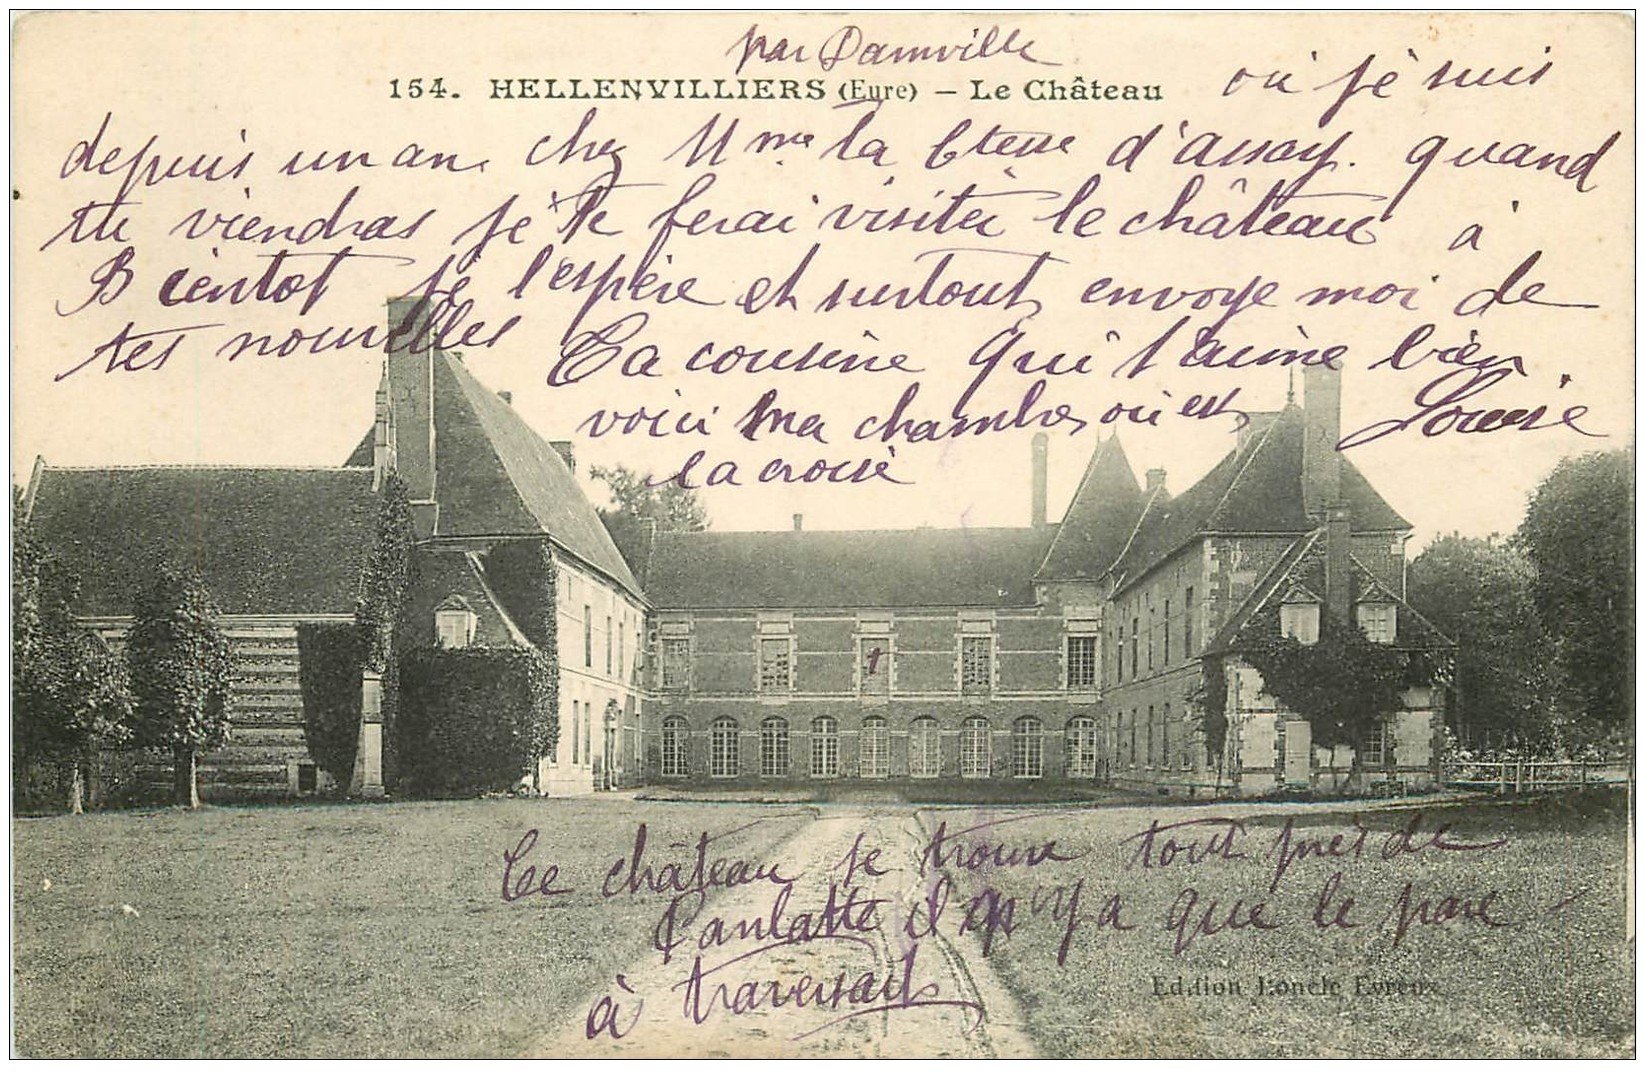 par Damville
154. HELLENVILLIERS (Eure) – Le Château
où je suis
depuis un an chez Mme la Ctesse d'Assay. quand
tu viendras je te ferai visiter le château à
Bientot je l'espère et surtout envoye moi de
tes nouvelles Ta cousine qui t'aime bien
Louise
voici ma chambre où est
la croix
Ce château se trouve tout près de
Paulatte il n'y a que le parc
à traversait
Edition Loncle Evreux